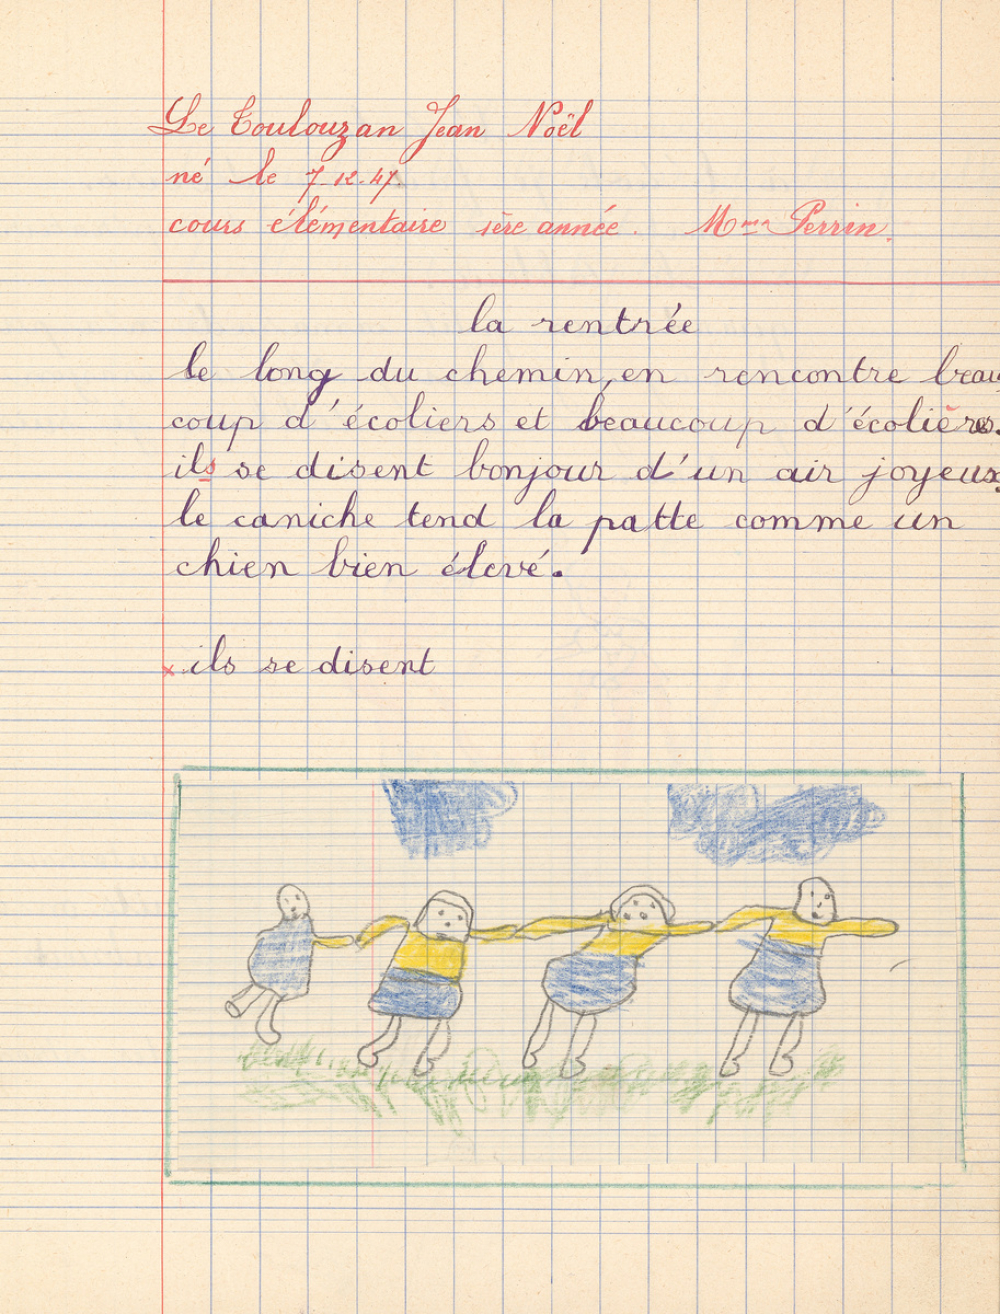 Le Toulouzan Jean Noël
né le 7-12-47
cours élémentaire 1ère année. Mme Perrin.
la rentrée
le long du chemin, en rencontre beau
coup d'écoliers et beaucoup d'écolières.
ils se disent bonjour d'un air joyeux.
le caniche tend la patte comme un
chien bien élevé.
x ils se disent